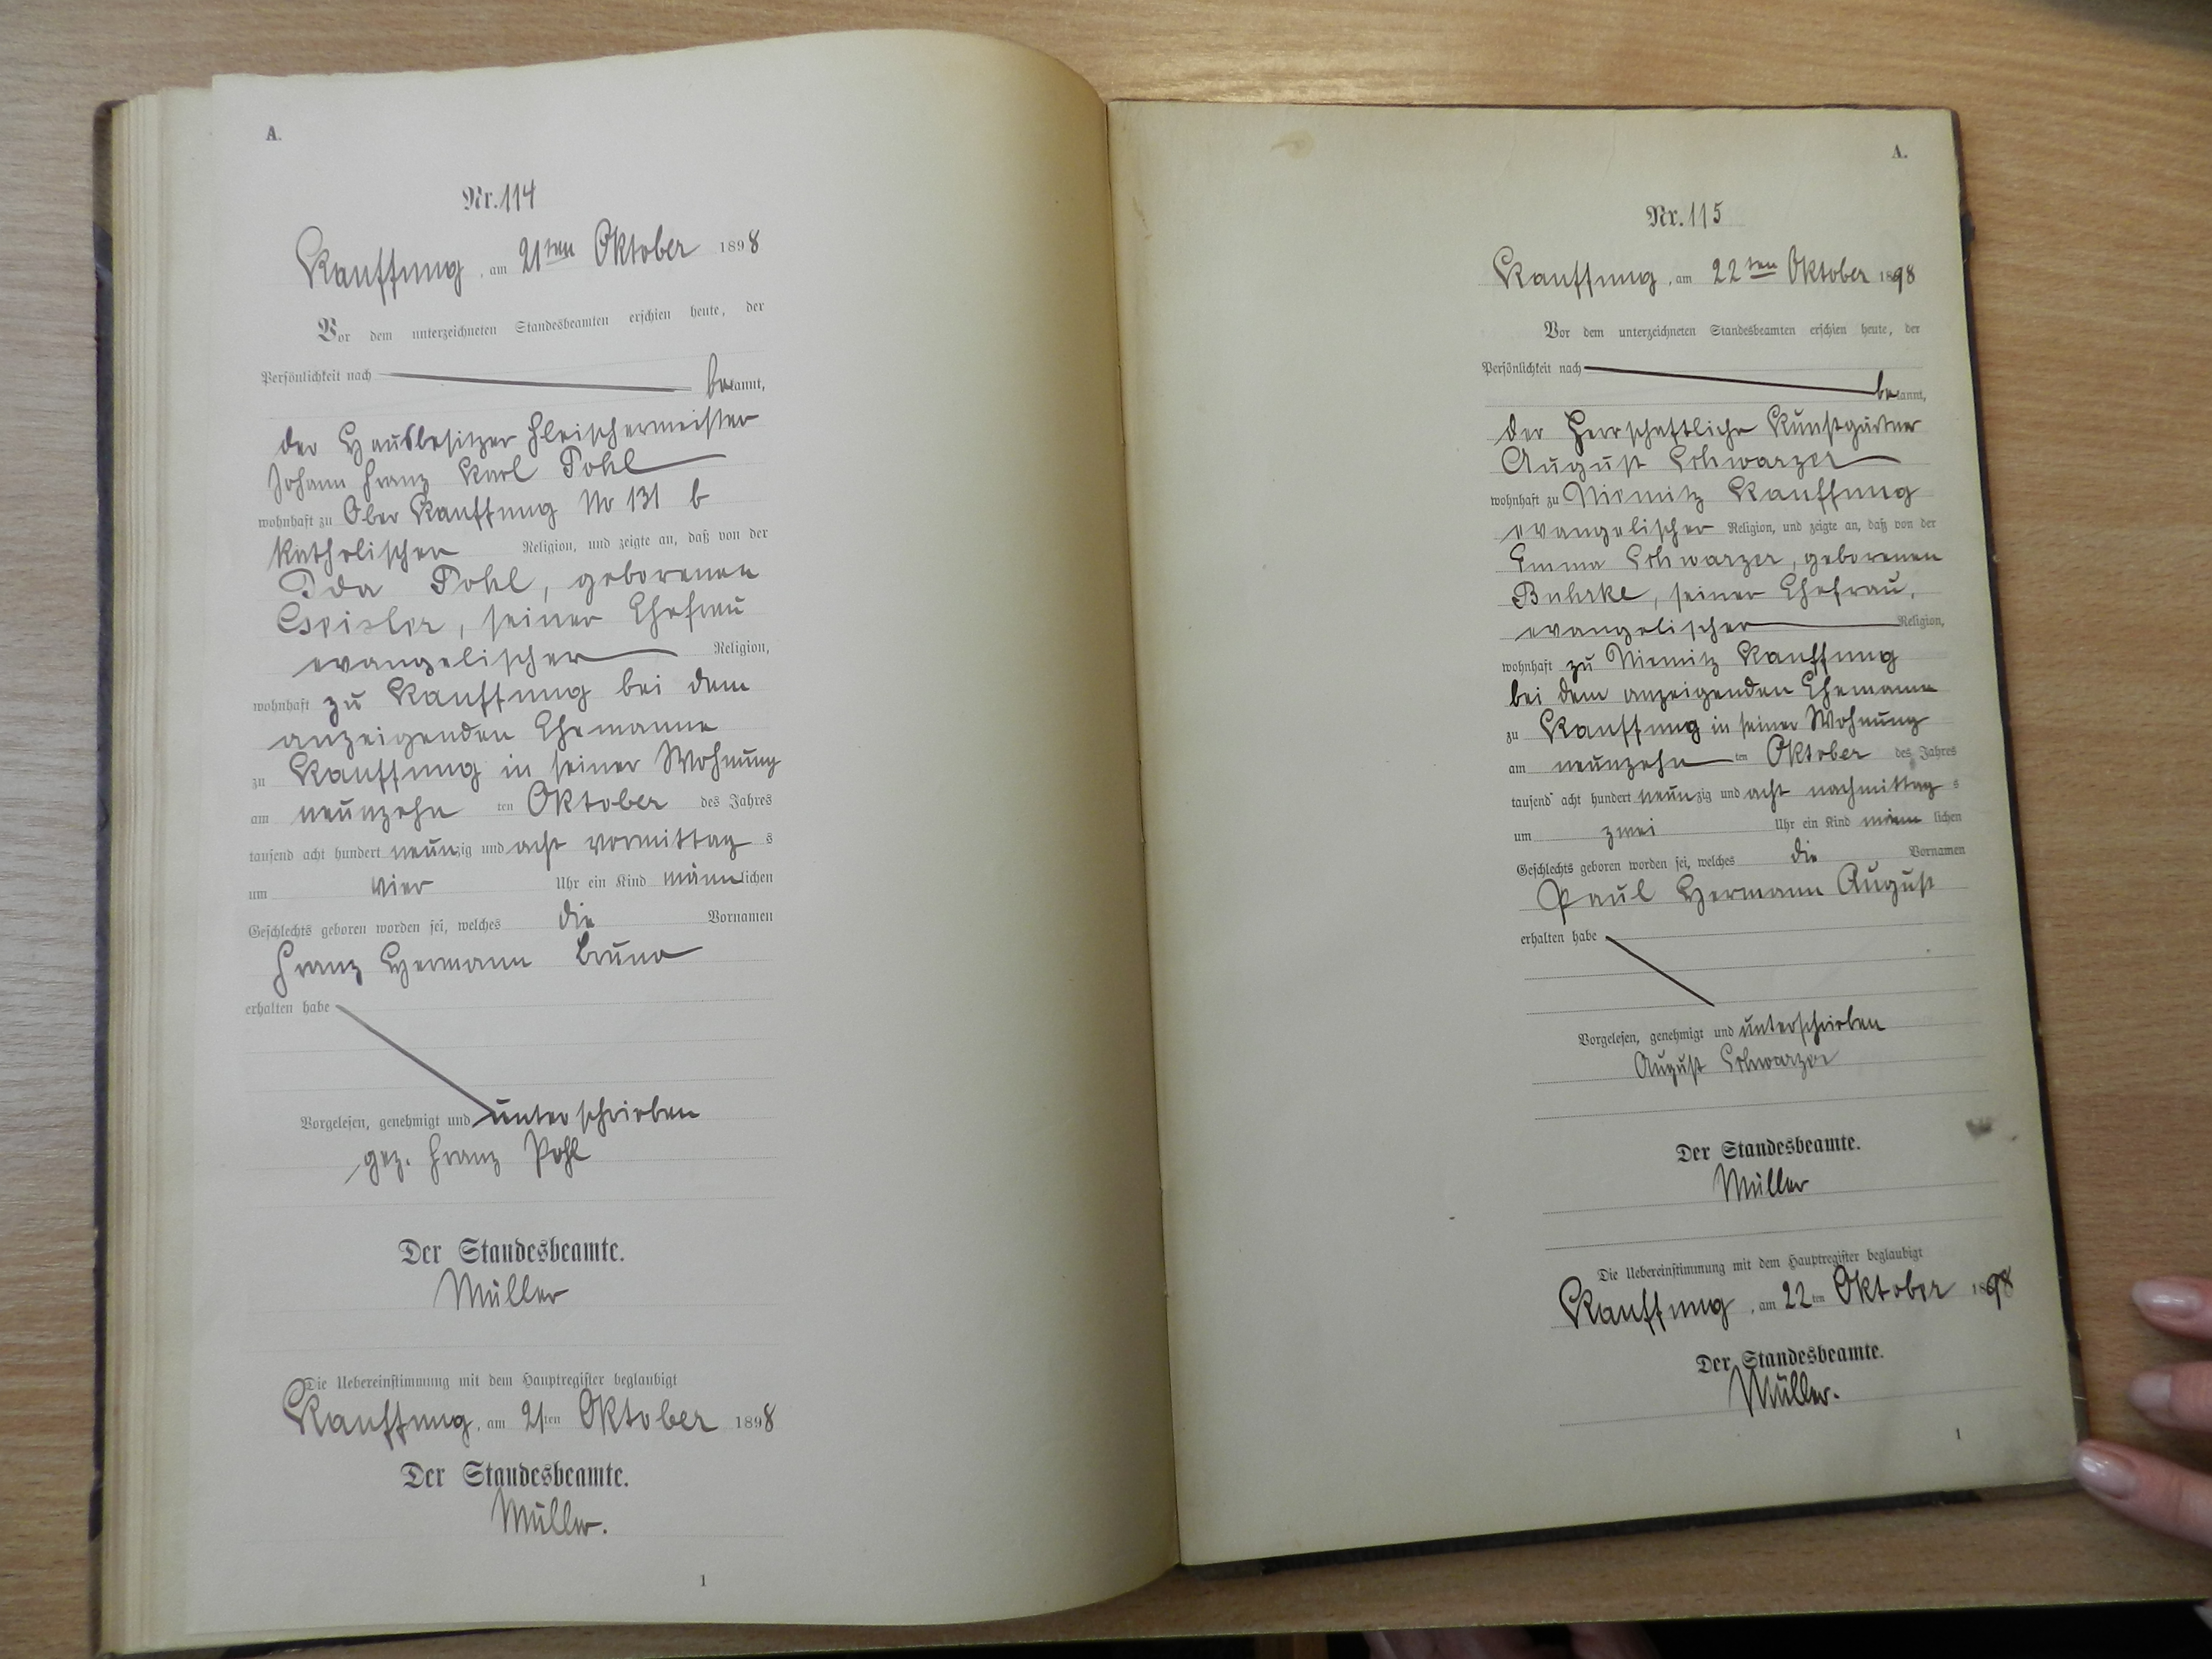 A.
Nr. 114
Kauffung, am 21ten Oktober 1898
Vor dem unterzeichneten Standesbeamten erschien heute, der
Persönlichkeit nach
bekannt,
der Hausbesitzer Fleischermeister
Johann Franz Karl Pohl
wohnhaft zu Ober Kauffung No 131 b
katholischer Religion, und zeigte an, daß von der
Ida Pohl, geborenen
seiner Ehefrau
evangelischer Religion,
wohnhaft zu Kauffung bei dem
anzeigenden Ehemanne
zu Kauffung in seiner Wohnung
am neunzehn ten Oktober des Jahres
tausend acht hundert neunzig und acht vormittags
um vier Uhr ein Kind männlichen
Geschlechts geboren worden sei, welches die Vornamen
Franz Hermann Bruno
erhalten habe
Vorgelesen, genehmigt und unterschrieben
gez. Franz Pohl
Der Standesbeamte.
Müller
Die Uebereinstimmung mit dem Hauptregister beglaubigt
Kauffung, am 21ten Oktober 1898
Der Standesbeamte.
Müller.
1
A.
Nr. 115
Kauffung, am 22ten Oktober 1898
Vor dem unterzeichneten Standesbeamten erschien heute, der
Persönlichkeit nach
bekannt,
der Herrschaftliche Kunstgärtner
August Schwarzer
wohnhaft zu Niemitz Kauffung
evangelischer Religion, und zeigte an, daß von der
Emma Schwarzer, geborenen
Buhrke, seiner Ehefrau,
evangelischer Religion,
wohnhaft zu Niemitz Kauffung
bei dem anzeigenden Ehemann
zu Kauffung in seiner Wohnung
am neunzehn ten Oktober des Jahres
tausend acht hundert neunzig und acht nachmittags
um zwei Uhr ein Kind männlichen
Geschlechts geboren worden sei, welches die Vornamen
Paul Hermann August
erhalten habe
Vorgelesen, genehmigt und unterschrieben
August Schwarzer
Der Standesbeamte.
Müller
Die Uebereinstimmung mit dem Hauptregister beglaubigt
Kauffung, am 22ten Oktober 1898
Der Standesbeamte.
Müller.
1